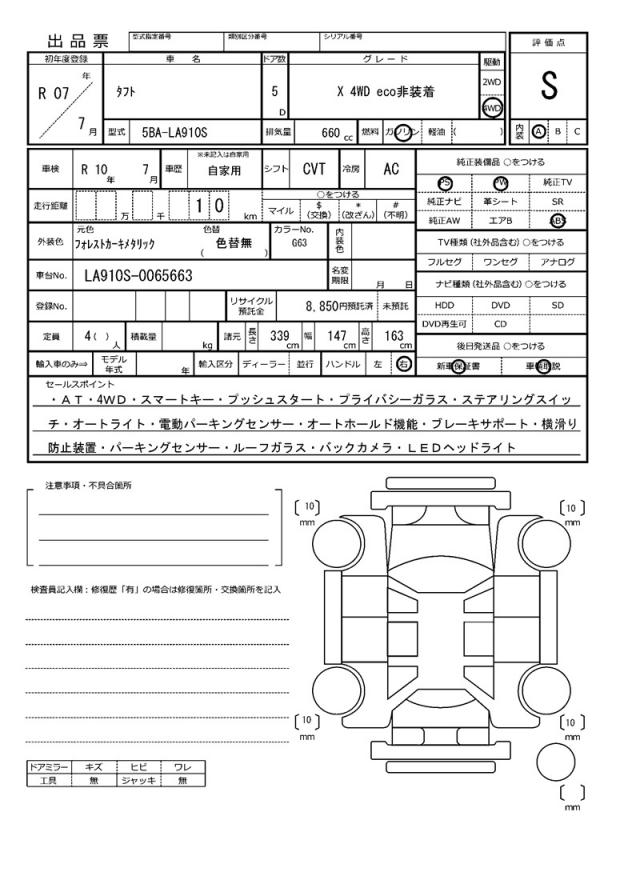 出品票
型式指定番号
類別区分番号
シリアル番号
評価点
S
初年度登録
車 名
ドア数
グレード
駆動
年
R 07
7 月
タフト
5
D
X 4WD eco非装着
2WD
4WD
型式
5BA-LA910S
排気量
660 cc
燃料
ガソリン
軽油
( )
内装
A
B
C
車検
R 10 年 7 月
車歴
※未記入は自家用
自家用
シフト
CVT
冷房
AC
純正装備品 ○をつける
PS
PW
純正TV
走行距離
万
千
1 0
km
○をつける
マイル
$
(交換)
*
(改ざん)
#
(不明)
純正ナビ
革シート
SR
純正AW
エアB
ABS
外装色
元色
フォレストカーキメタリック
色替
( 色替無 )
カラーNo.
G63
内装色
TV種類 (社外品含む) ○をつける
フルセグ
ワンセグ
アナログ
車台No.
LA910S-0065663
名変期限
月 日
ナビ種類 (社外品含む) ○をつける
登録No.
リサイクル
預託金
8,850円預託済
未預託
HDD
DVD
SD
DVD再生可
CD
定員
4( )
人
積載量
kg
諸元
長さ
339
cm
幅
147
cm
高さ
163
cm
後日発送品 ○をつける
輸入車のみ⇒
モデル
年式
年
輸入区分
ディーラー
並行
ハンドル
左
右
新車保証書
車載取説
セールスポイント
・ＡＴ・４ＷＤ・スマートキー・プッシュスタート・プライバシーガラス・ステアリングスイッ
チ・オートライト・電動パーキングセンサー・オートホールド機能・ブレーキサポート・横滑り
防止装置・パーキングセンサー・ルーフガラス・バックカメラ・ＬＥＤヘッドライト
注意事項・不具合箇所
〔 10 〕
mm
〔 10 〕
mm
検査員記入欄：修復歴「有」の場合は修復箇所・交換箇所を記入
〔 10 〕
mm
〔 10 〕
mm
ドアミラー
キズ
ヒビ
ワレ
工具
無
ジャッキ
無
〔 〕
mm